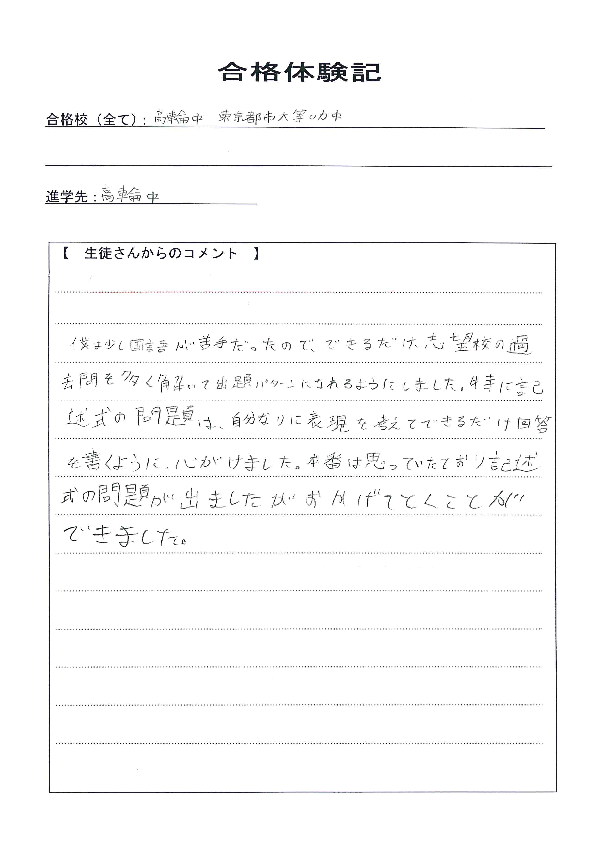 合格体験記
合格校（全て）: 高輪中 東京都市大等々力中
進学先 : 高輪中
【 生徒さんからのコメント 】
僕は少し国語が苦手だったので、できるだけ、志望校の過
去問を多く解いて出題パターンになれるようにしました。特に記
述式の問題は、自分なりに表現を考えてできるだけ回答
を書くように、心がけました。本番は思っていたとおり記述
式の問題が出ましたがおかげでとくことが
できました。